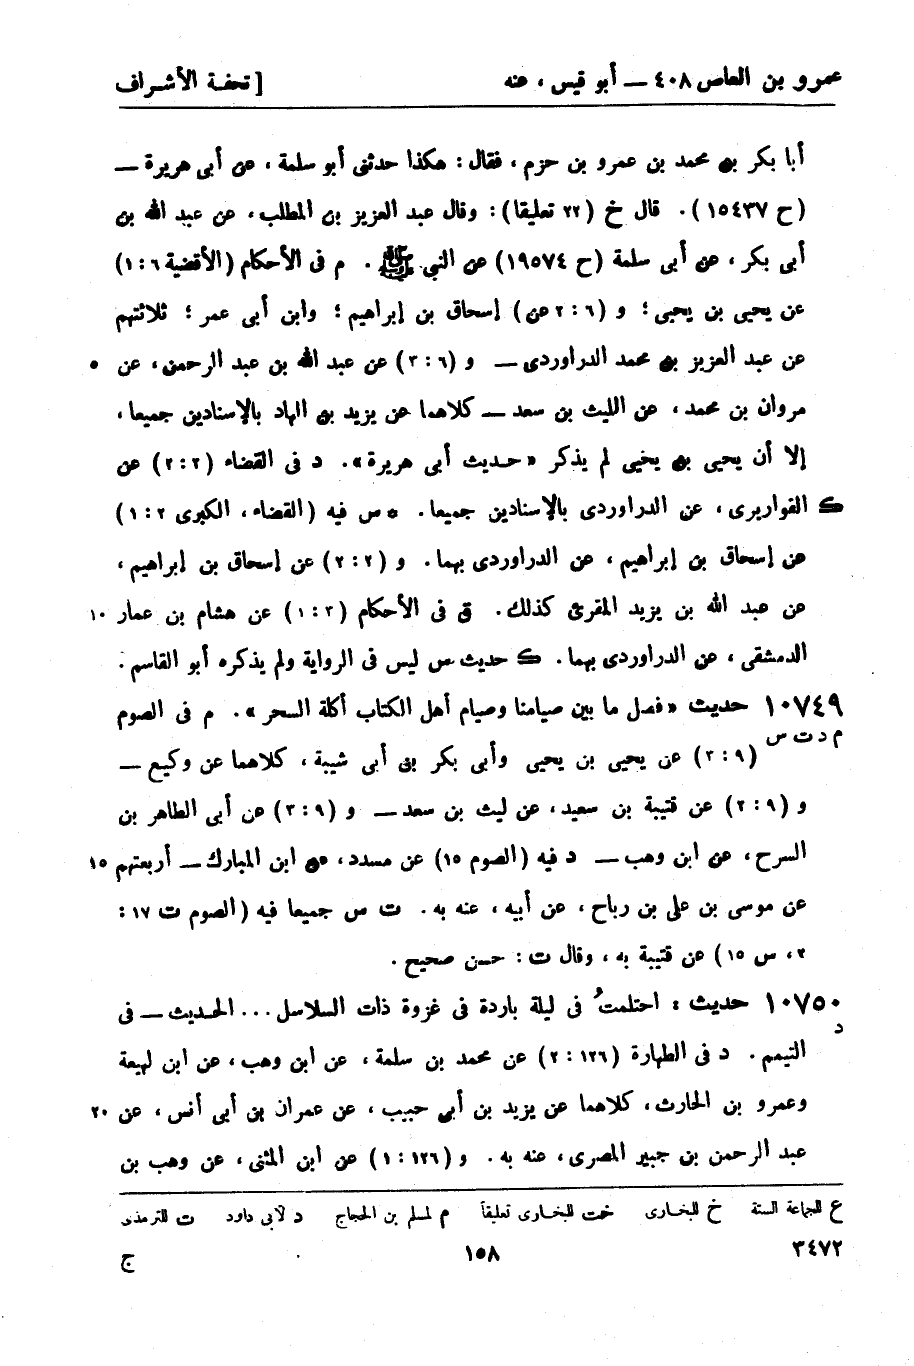 عمرو بن العاص ٤٠٨ — أبو قيس ، عنه [ تحفة الأشراف
أبا بكر بن محمد بن عمرو بن حزم ، فقال : هكذا حدثنى أبو سلمة ، عن أبى هريرة —
(ح ١٥٤٣٧) . قال خ (٢٢ تعليقا) : وقال عبد العزيز بن المطلب ، عن عبد الله بن
أبى بكر ، عن أبى سلمة (ح ١٩٥٧٤) عن النبى ﷺ . م فى الأحكام (الأقضية ٦ : ١)
عن يحيى بن يحيى ؛ و (٦ : ٢ عن) إسحاق بن إبراهيم ؛ وابن أبى عمر ؛ ثلاثتهم
عن عبد العزيز بن محمد الدراوردى — و (٦ : ٣) عن عبد الله بن عبد الرحمن ، عن ٥
مروان بن محمد ، عن الليث بن سعد — كلاهما عن يزيد بن الهاد بالإسنادين جميعا ،
إلا أن يحيى بن يحيى لم يذكر «حديث أبى هريرة» . د فى القضاء (٢ : ٢) عن
ك القواريرى ، عن الدراوردى بالإسنادين جميعا . * س فيه (القضاء ، الكبرى ٢ : ١)
عن إسحاق بن إبراهيم ، عن الدراوردى بهما . و (٢ : ٢) عن إسحاق بن إبراهيم ،
عن عبد الله بن يزيد المقرئ كذلك . ق فى الأحكام (٣ : ١) عن هشام بن عمار ١٠
الدمشقى ، عن الدراوردى بهما . ك حديث س ليس فى الرواية ولم يذكره أبو القاسم .
١٠٧٤٩ حديث «فصل ما بين صيامنا وصيام أهل الكتاب أكلة السحر» . م فى الصوم
م د ت س (٩ : ٣) عن يحيى بن يحيى وأبى بكر بن أبى شيبة ، كلاهما عن وكيع —
و (٩ : ٢) عن قتيبة بن سعيد ، عن ليث بن سعد — و (٩ : ٣) عن أبى الطاهر بن
السرح ، عن ابن وهب — د فيه (الصوم ١٥) عن مسدد ، عن ابن المبارك — أربعتهم ١٥
عن موسى بن على بن رباح ، عن أبيه ، عنه به . ت س جميعا فيه (الصوم ت ١٧ :
٢ ، س ١٥) عن قتيبة به ، وقال ت : حسن صحيح .
١٠٧٥٠ حديث : احتلمتُ فى ليلة باردة فى غزوة ذات السلاسل ... الحديث — فى
د التيمم . د فى الطهارة (١٢٦ : ٢) عن محمد بن سلمة ، عن ابن وهب ، عن ابن لهيعة
وعمرو بن الحارث ، كلاهما عن يزيد بن أبى حبيب ، عن عمران بن أبى أنس ، عن ٢٠
عبد الرحمن بن جبير المصرى ، عنه به . و (١٢٦ : ١) عن ابن المثنى ، عن وهب بن
ع للجماعة الستة خ للبخارى خت للبخارى تعليقاً م لمسلم بن الحجاج د لأبى داود ت للترمذى
٣٤٧٢ ١٥٨ ج